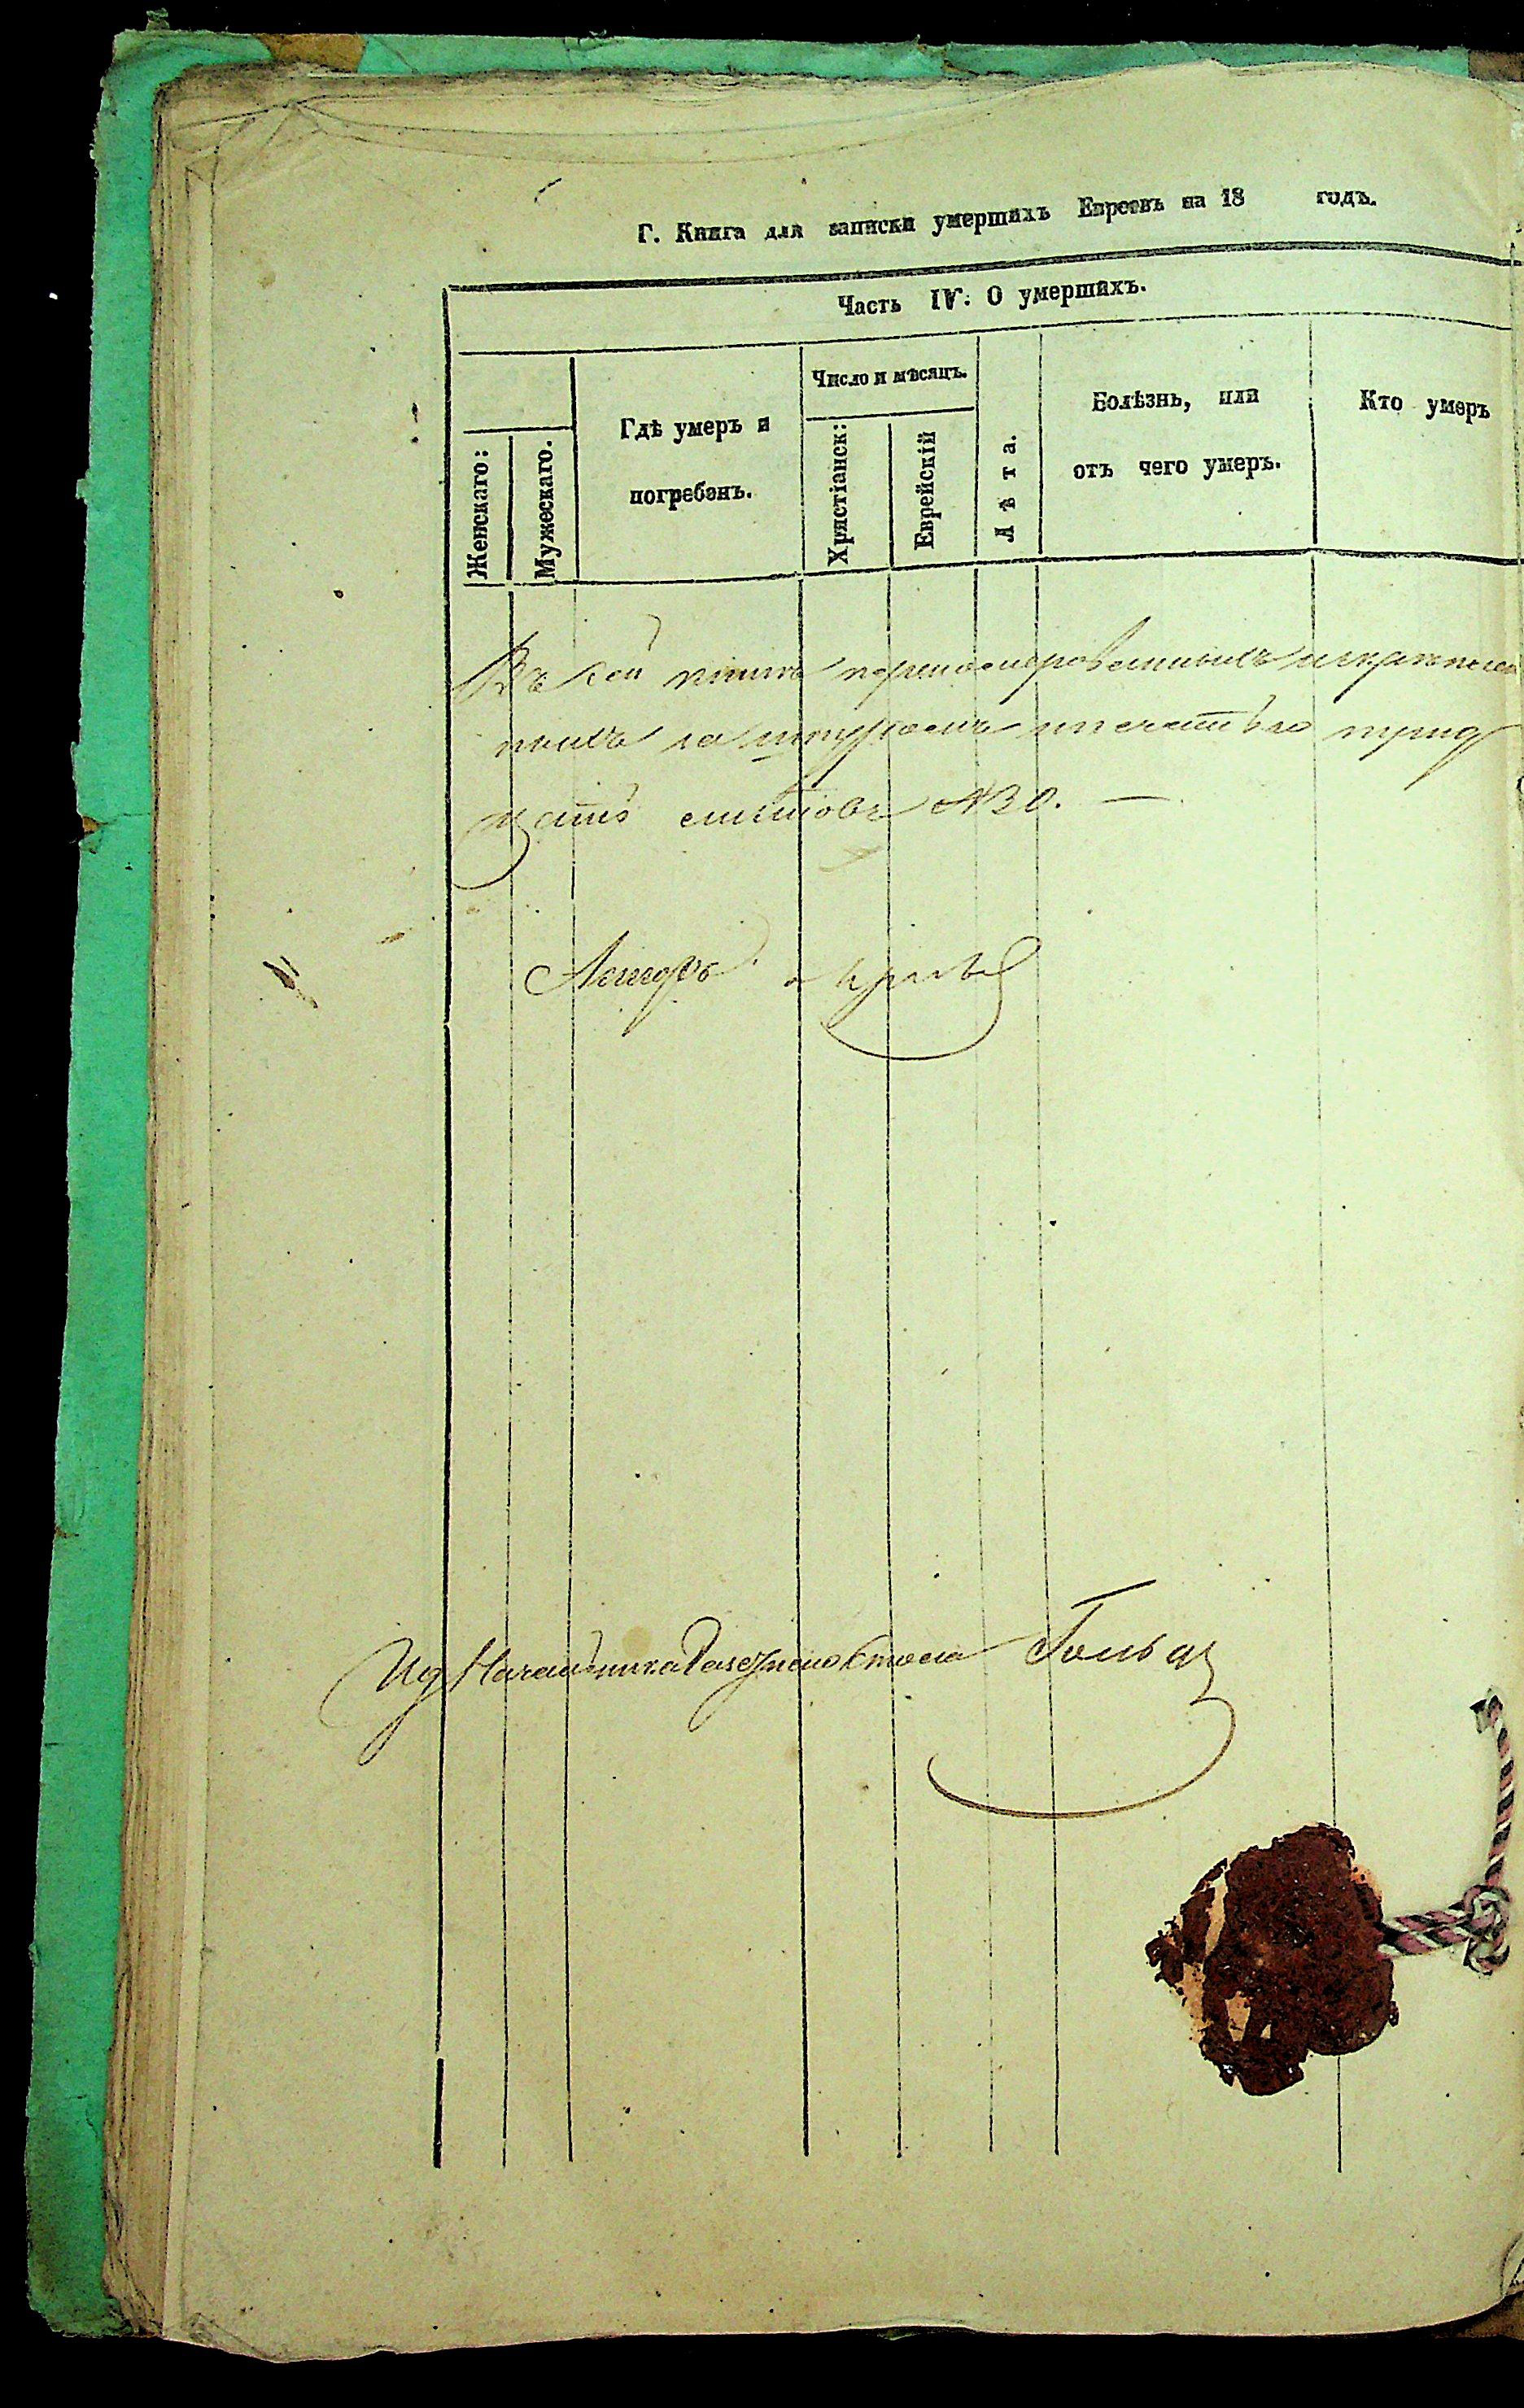 Г. Книга для записки умершихъ Евреевъ на 18 годъ.
Часть IV: О умершихъ.
Женскаго:
Мужескаго.
Гдѣ умеръ и
погребенъ.
Число и мѣсяцъ.
Христіанск:
Еврейскій
Лѣта.
Болѣзнь, или
отъ чего умеръ.
Кто умеръ
Въ сей книгѣ перномерованныхъ
ныхъ за шнуромъ и печатью трид
цать листовъ №30. —
Ид Начальника Стола Гольц